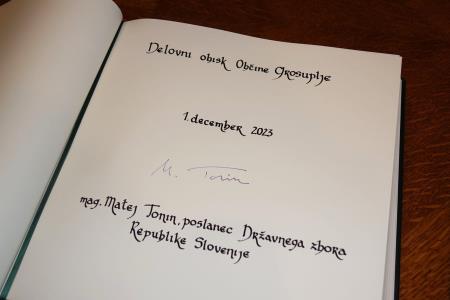 Delovni obisk Občine Grosuplje
1. december 2023
M. Tonin
mag. Matej Tonin, poslanec Državnega zbora
Republike Slovenije